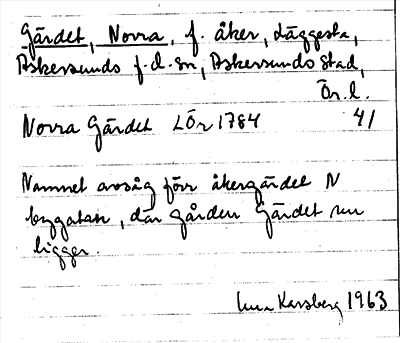 Gärdet, Norra, f. åker, Läggesta,
Askersunds f.d. sn, Askersunds stad,
Ör. l.
Norra Gärdet LÖr 1784 41
Namnet avsåg förr åkergärdet N
bygatan, där gården Gärdet nu
ligger.
Karsberg 1963